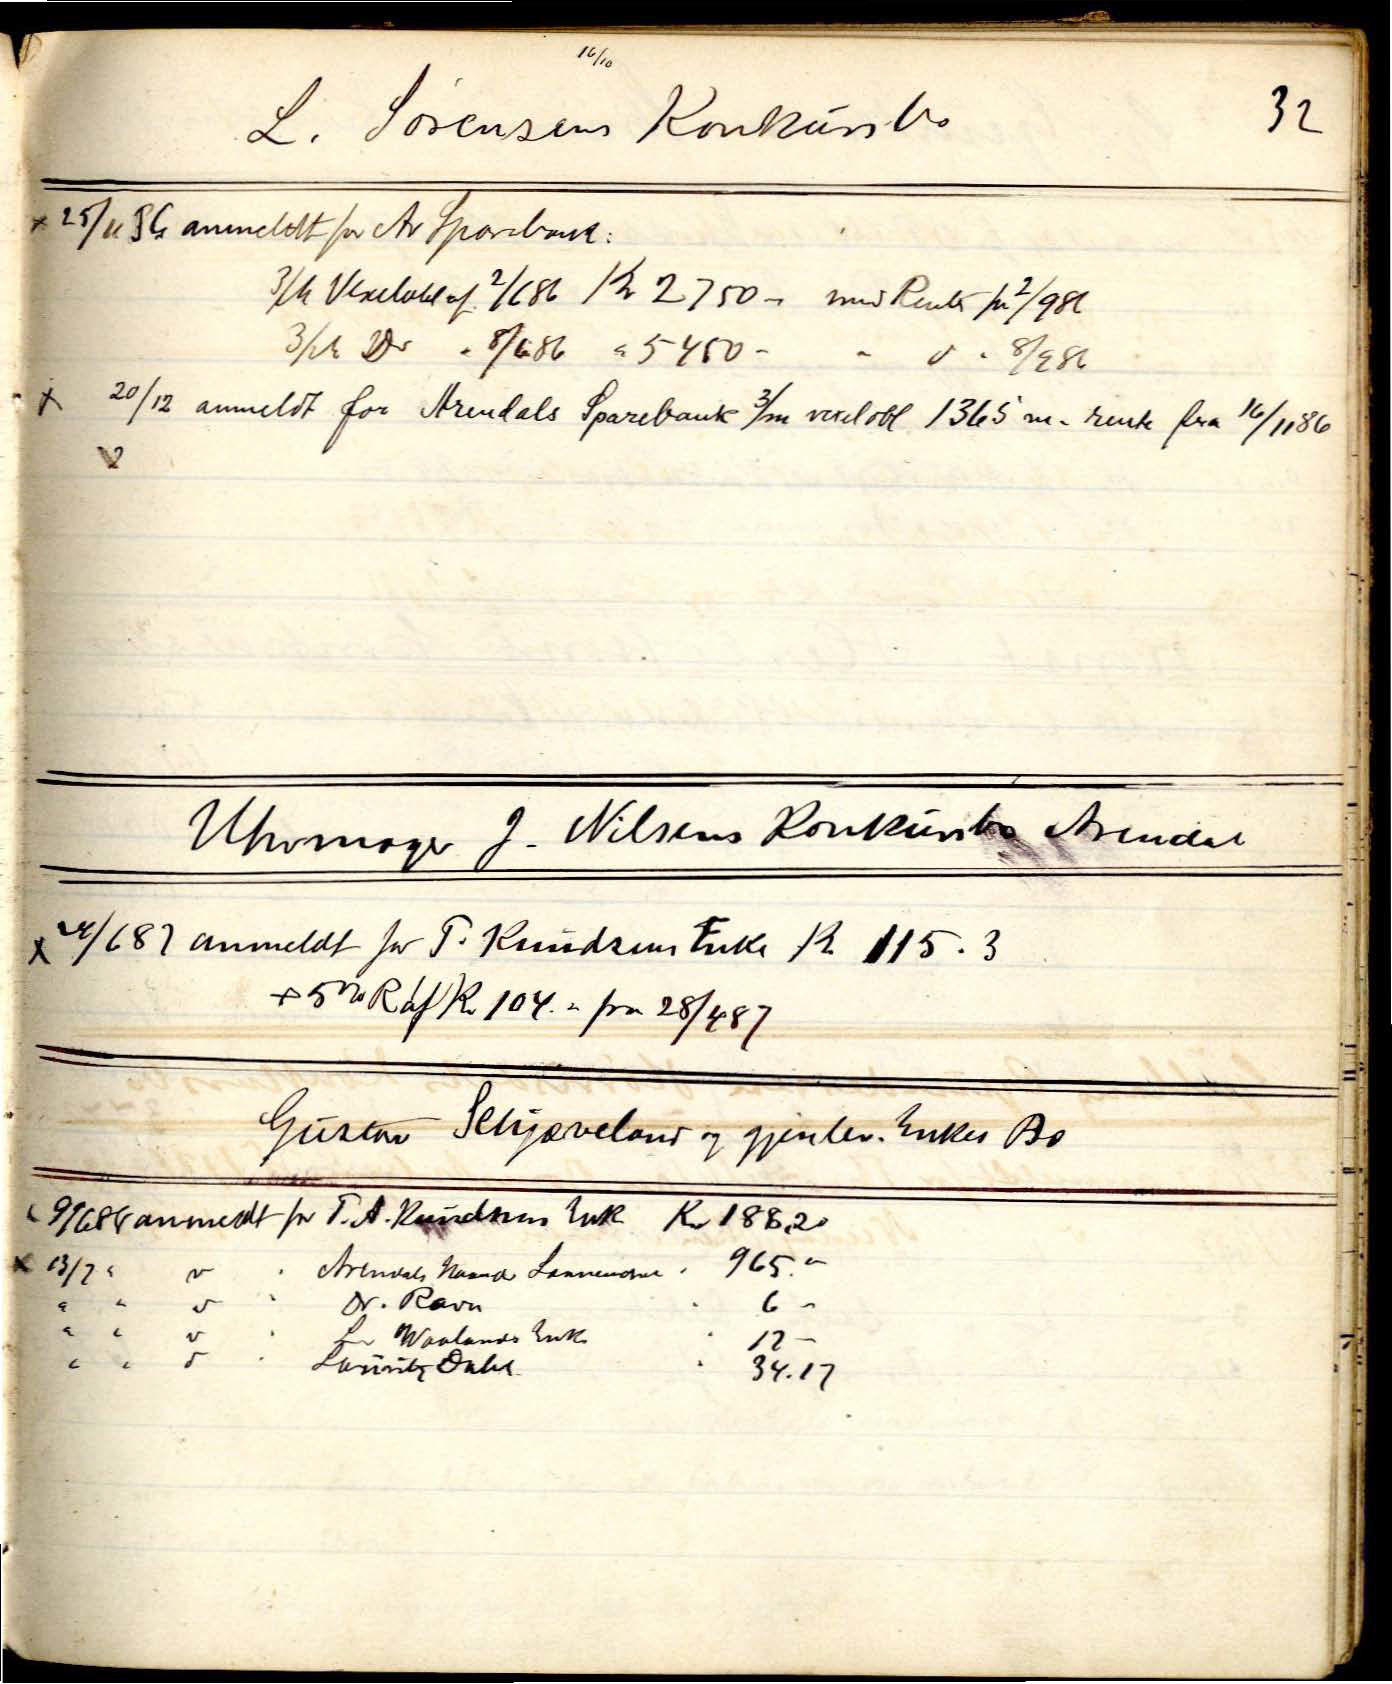 16/10
L. Sørensens Konkursbo 32
x 25/11 86 anmeldt for Ar Sparebank:
3/m Vexelobl af 2/6 86 Kr 2750 - med Rente fra 2/9 86
3/m Do " 8/6 86 " 5450 - " do " 8/9 86
x 20/12 anmeldt for Arendals Sparebank 3/m vexelobl 1365 m. rente fra 16/11 86
Uhrmager J. Nilsens Konkursbo Arendal
x 4/6 87 anmeldt for T. Knudsens Enke Kr 115.3
+ 5% R af Kr 104. " fra 28/4 87
Gustav Schjæveland og gjenlev. Enkes Bo
9/6 86 anmeldt for T. A. Knudsens Enk Kr 188,20
x 13/7 " do " Arendals 965. "
" " do " Dr. Ravn " 6 -
" " do " Waalands Enke " 12 -
" " do " Lauritz Dahl " 34.17